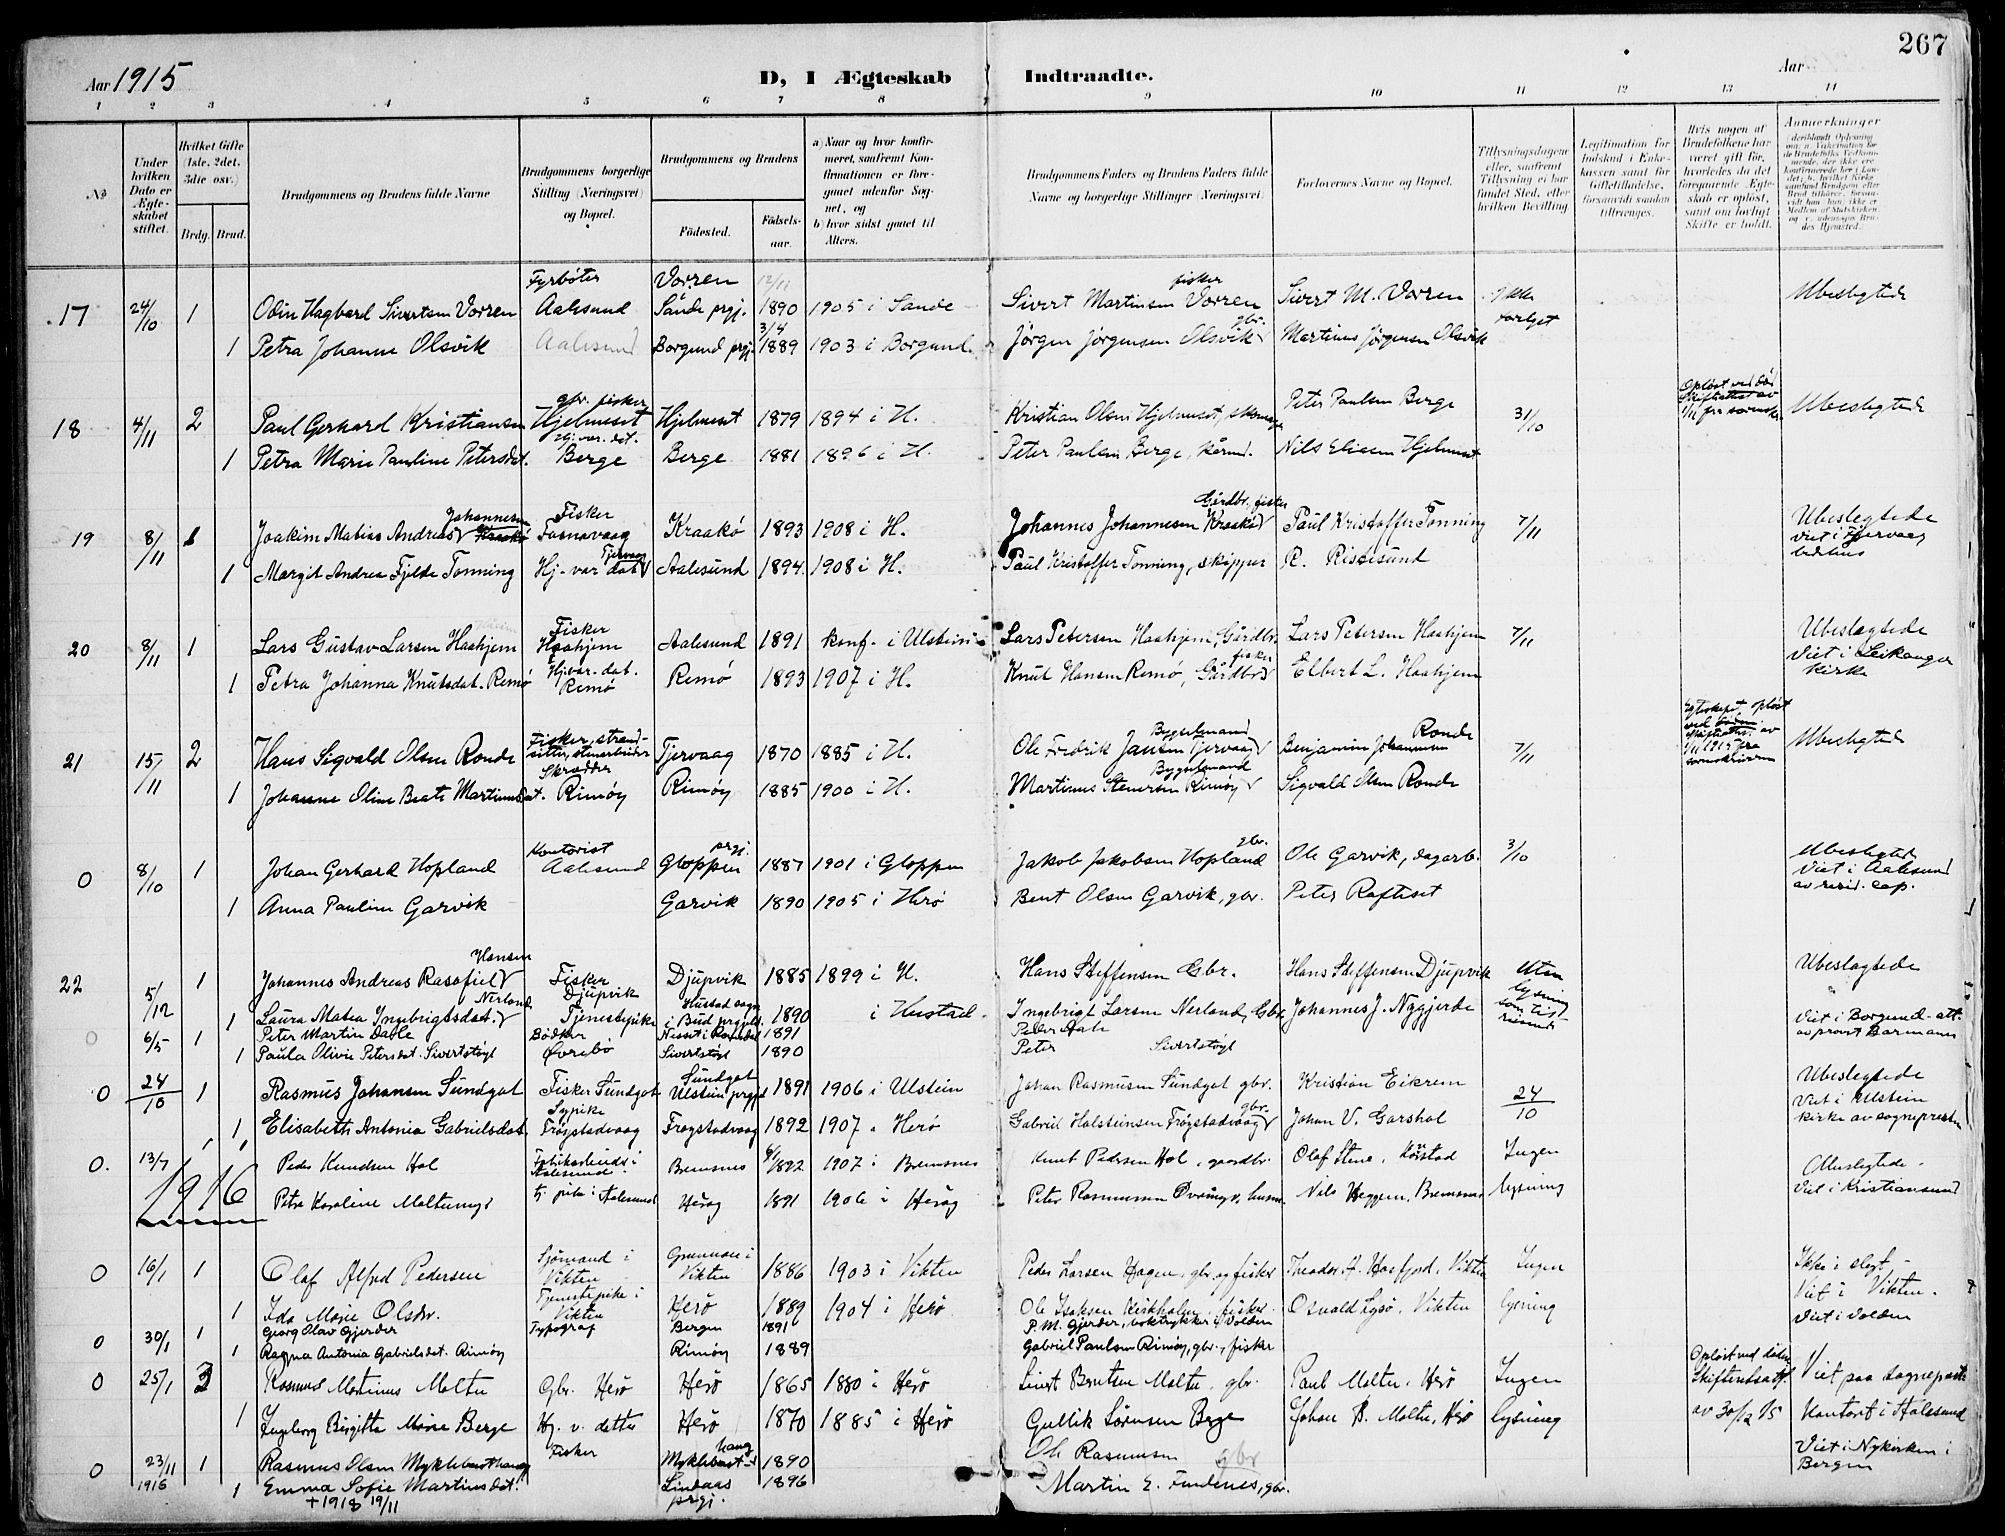 267
Aar 1915
D, I Ægteskab Indtraadte.
Aar
1 2 3 4 5 6 7 8 9 10 11 12 13 14
No
Under hvilken Dato er Ægteskabet stiftet.
Hvilket Gifte (1ste, 2det, 3die osv.)
Brdg. Brud.
Brudgommens og Brudens fulde Navne
Brudgommens borgerlige Stilling (Næringsvei) og Bopæl.
Brudgommens og Brudens
Fødested.
Fødselsaar.
a) Naar og hvor konfirmeret, saafremt Konfirmationen er foregaaet udenfor Sognet, og
b) hvor sidst gaaet til Alters.
Brudgommens Faders og Brudens Faders fulde Navne og borgerlige Stillinger (Næringsvei)
Forlovernes Navne og Bopæl.
Tillysningsdagene eller, saafremt Tillysning ei har fundet Sted, efter hvilken Bevilling
Legitimation for Indskud i Enkekassen samt for Giftetilladelse, forsaavidt saadan tiltrænges.
Hvis nogen af Brudefolkene har været gift før, hvorledes da det foregaaende Ægteskab er opløst, samt om lovligt Skifte er holdt.
Anmerkninger
Fyrbøter Vorren 12/11 fisker
17 24/10 1 Odin Hagbard Sivertsen Vorren Aalesund Sande prgj. 1890 1905 i Sande Sivert Martinsen Vorren Sivert M. Vorren Ikke Ubeslegtede
3/4 gbr.
1 Petra Johanne Olsvik Aalesund Borgund prgj. 1889 1903 i Borgund Jørgen Jørgensen Olsvik Martinus Jørgensen Olsvik
gbr. fisker
18 4/11 2 Paul Gerhard Kristiansen Hjelmeset Hjelmeset 1879 1894 i H. Kristian Olsen Hjelmeset, Peter Paulsen Berge 31/10 Ubeslegtede
Hj. var. dat.
1 Petra Marie Pauline Petersdat. Berge Berge 1881 1896 i H. Peter Paulsen Berge, Nils Eliesen Hjelmeset
Johannesen Fisker Gårdbr. fisker
19 8/11 1 Joakim Matias Andreas Kraakø Fosnavaag Kraakø 1893 1908 i H. Johannes Johannesen Kraakø Paul Kristoffer Tonning 7/11 Ubeslegtede viet i Tjervaag bedehus
Tjervaag
1 Margit Andrea Fjelde Tonning Hj. var dat Aalesund 1894 1908 i H. Paul Kristoffer Tonning, skipper R. Rissesund
Fisker
20 8/11 1 Lars Gustav Larsen Haahjem Haahjem Aalesund 1891 konf. i Ulstein Lars Petersen Haahjem, Gårdbr. Lars Petersen Haahjem 7/11 Ubeslegtede Viet i Leikanger Kirke
Hj. var. dat. fisker
1 Petra Johanna Knutsdat. Remø Remø Remø 1893 1907 i H. Knut Hansen Remø, Gårdbr. Elbert L. Haahjem
Fisker, strandsitter, stenarbeider Bygselmand Ronde
21 15/11 2 Hans Sigvald Olsen Ronde Skrædder Tjervaag 1870 1885 i H. Ole Fredrik Jansen Tjervaag Benjamin Johannesen 7/11 Ubeslegtede
Bygselmand
1 Johanne Oline Beate Martinusdat. Rimøy Rimøy 1885 1900 i H. Martinus Stenersen Rimøy Sigvald Olsen Ronde
Kontorist prgj. gbr.
0 8/10 1 Johan Gerhard Hopland Aalesund Gloppen 1887 1901 i Gloppen Jakob Jakobsen Hopland Ole Garvik, dagarb. 3/10 Ubeslegtede Viet i Aalesund av resid. cap.
1 Anna Pauline Garvik Garvik 1890 1905 i Herø Bent Olsen Garvik, gbr. Peter Rafteset
Hansen
22 5/12 1 Johannes Andreas Rasofiel Fisker Djupvik Djupvik 1885 1899 i H. Hans Steffensen Gbr. Hans Steffensen Djupvik Uten lysning Ubeslegtede
Nerland
1 Laura Matea Ingebrigtsdat. Tjenestepike i Bud prgjeld 1890 i Hustad. Ingebrigt Larsen Nerland, Gbr. Johannes J. Nygjerde Viet i Borgund att. av provst Barmann
0 6/5 1 Peter Martin Dahle Bødker 1891 Peter Dahle
1 Paula Olivie Petersdat. Sivertstøyl Øvrebø Sivertstøyl 1890 Peter Sivertstøyl
0 24/10 1 Rasmus Johansen Sundgot Fisker Sundgot Sundgot Ulstein prgjd 1891 1906 i Ulstein Johan Rasmussen Sundgot gbr. Kristian Eikrem 24/10 Ubeslegtede Viet i Ulstein kirke av sogneprest
1 Elisabeth Antonia Gabrielsdat. Frøystadvaag Frøystadvaag 1892 1907 " Herø Gabriel Holsteinsen Frøystadvaag gbr. Johan V. Garshol
0. 13/7 Peder Knudsen Hol Fabrikarbeider i Aalesund Bremsnes 1892 1907 i Bremsnes Knut Pedersen Hol, gaardbr. Olaf Stene, Ingen lysning Ubeslegtede. Viet i Kristiansund
1916
Petra Karoline Moltumyr tj. pike i Aalesund Herøy 1891 1906 i Herøy Peter Rasmussen Nils Heggem, Bremsnes
0 16/1 1 Olaf Alfred Pedersen Sjømand i Vikten Vikten 1886 1903 i Vikten Peder Larsen Hagen, gbr og fisker Theodor A. Hosfjord, Vikten Ingen lysning Ikke i slegt. Viet i Vikten.
1 Ida Marie Olsdr. Tjenestepike i Vikten Herø 1889 1904 i Herø Ole Isaksen Kirkholm, fisker Osvald Lysø, Vikten
0 30/1 1 Georg Olav Gjerder Typograf Bergen 1891 P. M. Gjerder, boktrykker i Volden Viet i Volden
1 Ragna Antonia Gabrielsdat. Rimøy Rimøy 1889 Gabriel Paulsen Rimøy, gbr., fisker
0 25/1 3 Rasmus Martinus Moltu Gbr. Herø Herø 1865 1880 i Herø Sivert Bentsen Moltu, gbr. Paul Moltu, Herø Ingen lysning Opløst ved døden Skifteattest av 30/12 15 Viet paa sogneprests kontort i Aalesund
1 Ingeborg Birgitte Marie Berge Hj. v. datter Herø 1870 1885 i Herø Gullik Sørensen Berge Johan B. Moltu, Herø
0 23/11 1916 1 Rasmus Olsen Myklebusthaug Fisker Myklebusthaug 1890 Ole Rasmussen gbr Viet i Nykirken i Bergen
1 Emma Sofie Martinsdat. Lindaas prgj. 1896 Martin E. Fundenes, gbr.
+ 1918 19/11